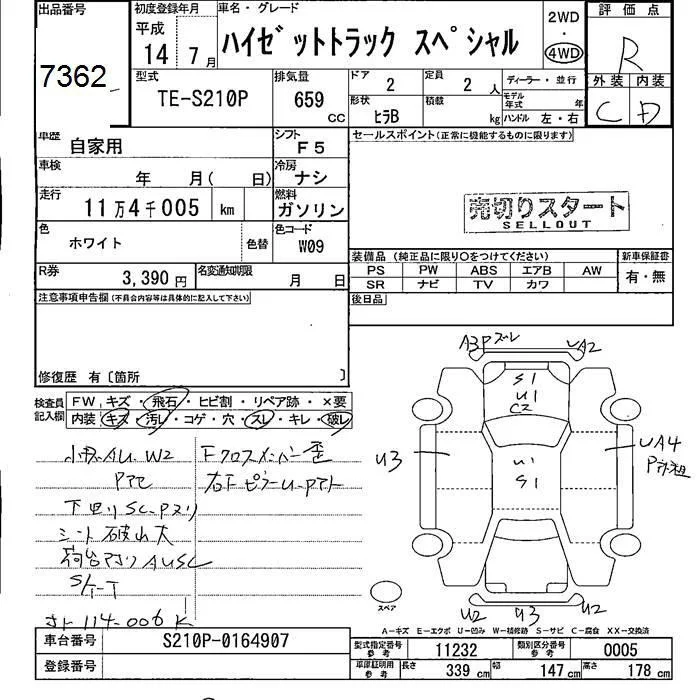 出品番号
7362
初度登録年月
平成
14 7月
車名・グレード
ハイゼットトラック スペシャル
2WD
・
4WD
評価点
R
外装 内装
C D
型式
TE-S210P
排気量
659
CC
ドア
2
定員
2 人
ディーラー・並行
モデル年式 年
形状
ヒラB
積載
kg
ハンドル 左・右
車歴
自家用
シフト
F5
セールスポイント(正常に機能するものに限ります)
車検
年 月( 日)
冷房
ナシ
走行
11万4千005 km
燃料
ガソリン
売切りスタート
SELLOUT
色
ホワイト
色替
色コード
W09
装備品 (純正品に限り○をつけてください)
新車保証書
PS PW ABS エアB AW
有・無
SR ナビ TV カワ
R券
3,390円
名変通知期限
月 日
後日品
注意事項申告欄(不具合内容等は具体的に記入して下さい)
修復歴 有〔箇所 〕
検査員記入欄
FW キズ・飛石・ヒビ割・リペア跡・×要
内装 キズ・汚レ・コゲ・穴・スレ・キレ・破レ
A3 Pズレ
UA2
S1
U1
C2
U3
U1
S1
UA4
小キズAU. W2
Fクロスメンバー歪
下回りSC.Pヌリ
シート破レ大
荷台 AUSC
114-006K
スペア
U2 U3 U2
A-キズ E-エクボ U-凹み W-補修跡 S-サビ C-腐食 XX-交換済
車台番号
S210P-0164907
型式指定番号
参考
11232
類別区分番号
参考
0005
登録番号
車庫証明用
参考
長さ
339 cm
幅
147 cm
高さ
178 cm